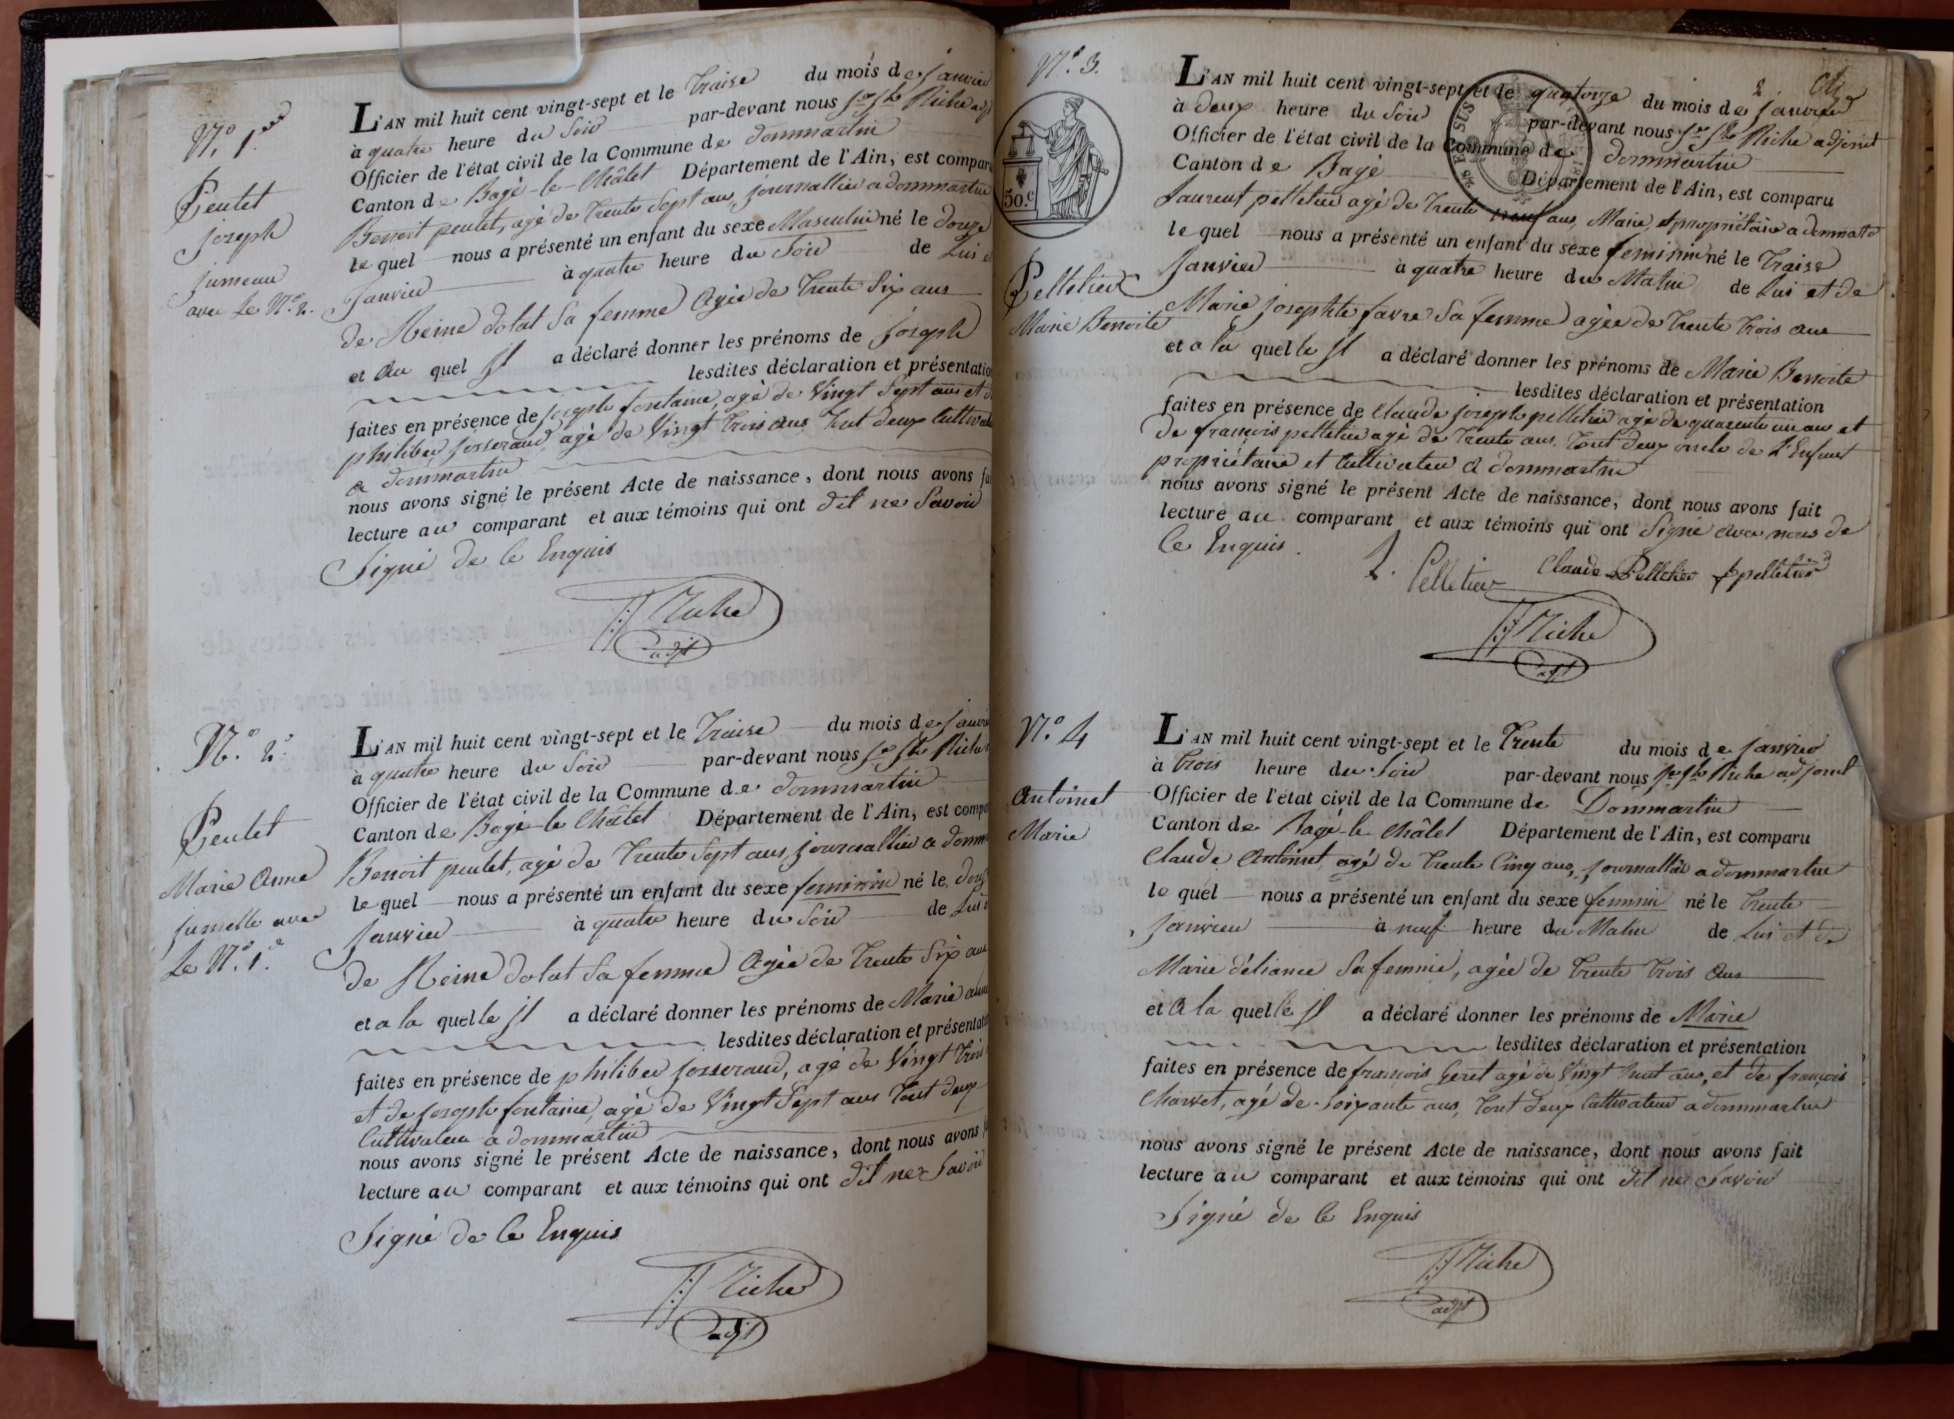 N.º 1.er
Peulet
joseph
jumeau
avec Le N.º 2.
L'AN mil huit cent vingt-sept et le Traise du mois de janvier
à quatre heure du Soir par-devant nous Riche
Officier de l'état civil de la Commune de dommartin
Canton de Bagé-le-Châtel Département de l'Ain, est compar
Benoit peulet, agé de Trente Sept ans, journallier a dommartin
le quel nous a présenté un enfant du sexe Masculin né le douze
janvier à quatre heure du Soir de Lui
de Reine dolat Sa femme Agée de Trente Six ans
et Au quel jl a déclaré donner les prénoms de joseph
lesdites déclaration et présentatio
faites en présence de joseph fontaine, agé de Vingt Sept ans et
philiber josserand, agé de Vingt Trois ans, Tout deux Cultiva
a dommartin
nous avons signé le présent Acte de naissance, dont nous avons fa
lecture au comparant et aux témoins qui ont dit ne Savoir
Signé de ce Enquis
Riche
adjt
N.º 2.
Peulet
Marie Anne
jumelle avec
Le N.º 1.
L'AN mil huit cent vingt-sept et le Traise du mois de janvi
à quatre heure du Soir par-devant nous Riche
Officier de l'état civil de la Commune de dommartin
Canton de Bagé-le-Châtel Département de l'Ain, est compa
Benoit peulet, agé de Trente Sept ans, journallier a domm
le quel nous a présenté un enfant du sexe feminin né le douz
janvier à quatre heure du Soir de Lui
de Reine dolat Sa femme Agée de Trente Six ans
et a la quelle jl a déclaré donner les prénoms de Marie anne
lesdites déclaration et présentat
faites en présence de philiber josserand, agé de Vingt Trois
et de joseph fontaine, agé de Vingt Sept ans Tout deux
Cultivateur a dommartin
nous avons signé le présent Acte de naissance, dont nous avons
lecture au comparant et aux témoins qui ont dit ne Savoir
Signé de ce Enquis
Riche
adjt
2
N.º 3.
50.c
Pelletier
Marie Benoite
L'AN mil huit cent vingt-sept et le quatorze du mois de janvier
à deux heure du Soir par-devant nous Riche adjoint
Officier de l'état civil de la Commune de dommartin
Canton de Bagé Département de l'Ain, est comparu
Laurent pelletier agé de Trente neuf ans, Marie, et propriétaire a dommartin
le quel nous a présenté un enfant du sexe feminin né le Traise
janvier à quatre heure du Matin de Lui et de
Marie josephte favre Sa femme agée de Trente Trois ans
et a la quelle jl a déclaré donner les prénoms de Marie Benoite
lesdites déclaration et présentation
faites en présence de Claude joseph pelletier agé de quarente un ans et
de françois pelletier agé de Trente ans, Tout deux oncle de L'Enfant
propriétaire et Cultivateur a dommartin
nous avons signé le présent Acte de naissance, dont nous avons fait
lecture au comparant et aux témoins qui ont Signé avec nous de
Ce Enquis.
L. Pelletier Claude Pelletier f pelletier
Riche
adjt
N.º 4
Antoinet
Marie
L'AN mil huit cent vingt-sept et le Trente du mois de janvier
à trois heure du Soir par-devant nous Riche adjoint
Officier de l'état civil de la Commune de Dommartin
Canton de Bagé-le-Châtel Département de l'Ain, est comparu
Claude Antoinet, agé de Trente Cinq ans, journallier a dommartin
le quel nous a présenté un enfant du sexe feminin né le Trente
janvier à neuf heure du Matin de Lui et de
Marie déliance Sa femme, agée de Trente Trois Ans
et A la quelle jl a déclaré donner les prénoms de Marie
lesdites déclaration et présentation
faites en présence de françois Geret agé de Vingt huit ans, et de françois
Charvet, agé de Soixante ans, Tout deux Cultivateur a dommartin
nous avons signé le présent Acte de naissance, dont nous avons fait
lecture au comparant et aux témoins qui ont dit ne Savoir
Signé de Ce Enquis
Riche
adjt